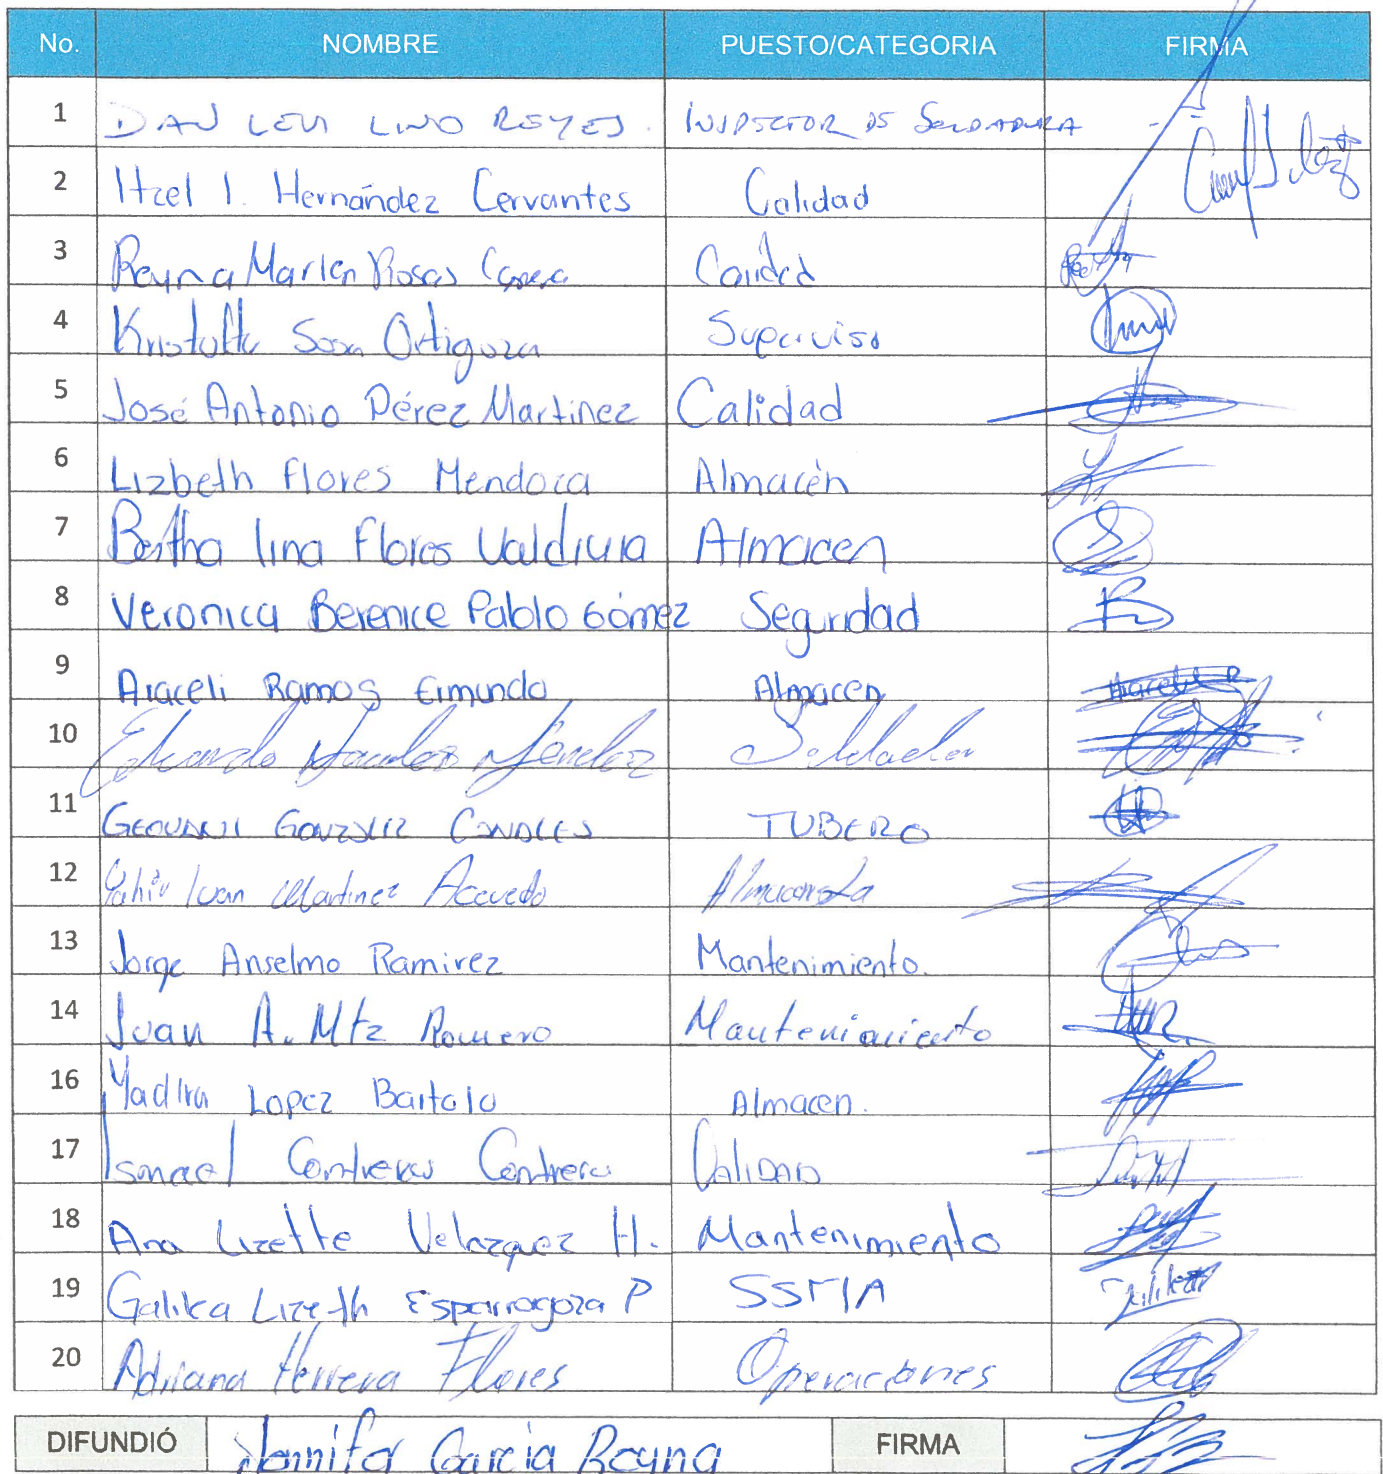 No. NOMBRE PUESTO/CATEGORIA FIRMA
1 DAN LEVI LINO REYES. INSPECTOR DE SOLDADURA
2 Itzel I. Hernández Cervantes Calidad
3 Reyna Marlen Rosas Calidad
4 Sosa Ortigoza Superviso
5 José Antonio Pérez Martínez Calidad
6 Lizbeth Flores Mendoza Almacén
7 Bertha lina Flores Valdivia Almacen
8 Veronica Berenice Pablo Gómez Seguridad
9 Araceli Ramos Eimundo Almacen
10 Eduardo Soldador
11 GEOVANNI GONZALEZ CANALES TUBERO
12 Ivan Martinez Acevedo Almacenista
13 Jorge Anselmo Ramirez Mantenimiento.
14 Juan A. Mtz Romero Mantenimiento
16 Yadira Lopez Bartolo Almacen.
17 Ismael Contreras Contreras CALIDAD
18 Ana Lizette Velazquez H. Mantenimiento
19 Galilea Lizeth Esparragoza P SSMA
20 Adriana Herrera Flores Operaciones
DIFUNDIÓ Jennifer Garcia Reyna FIRMA